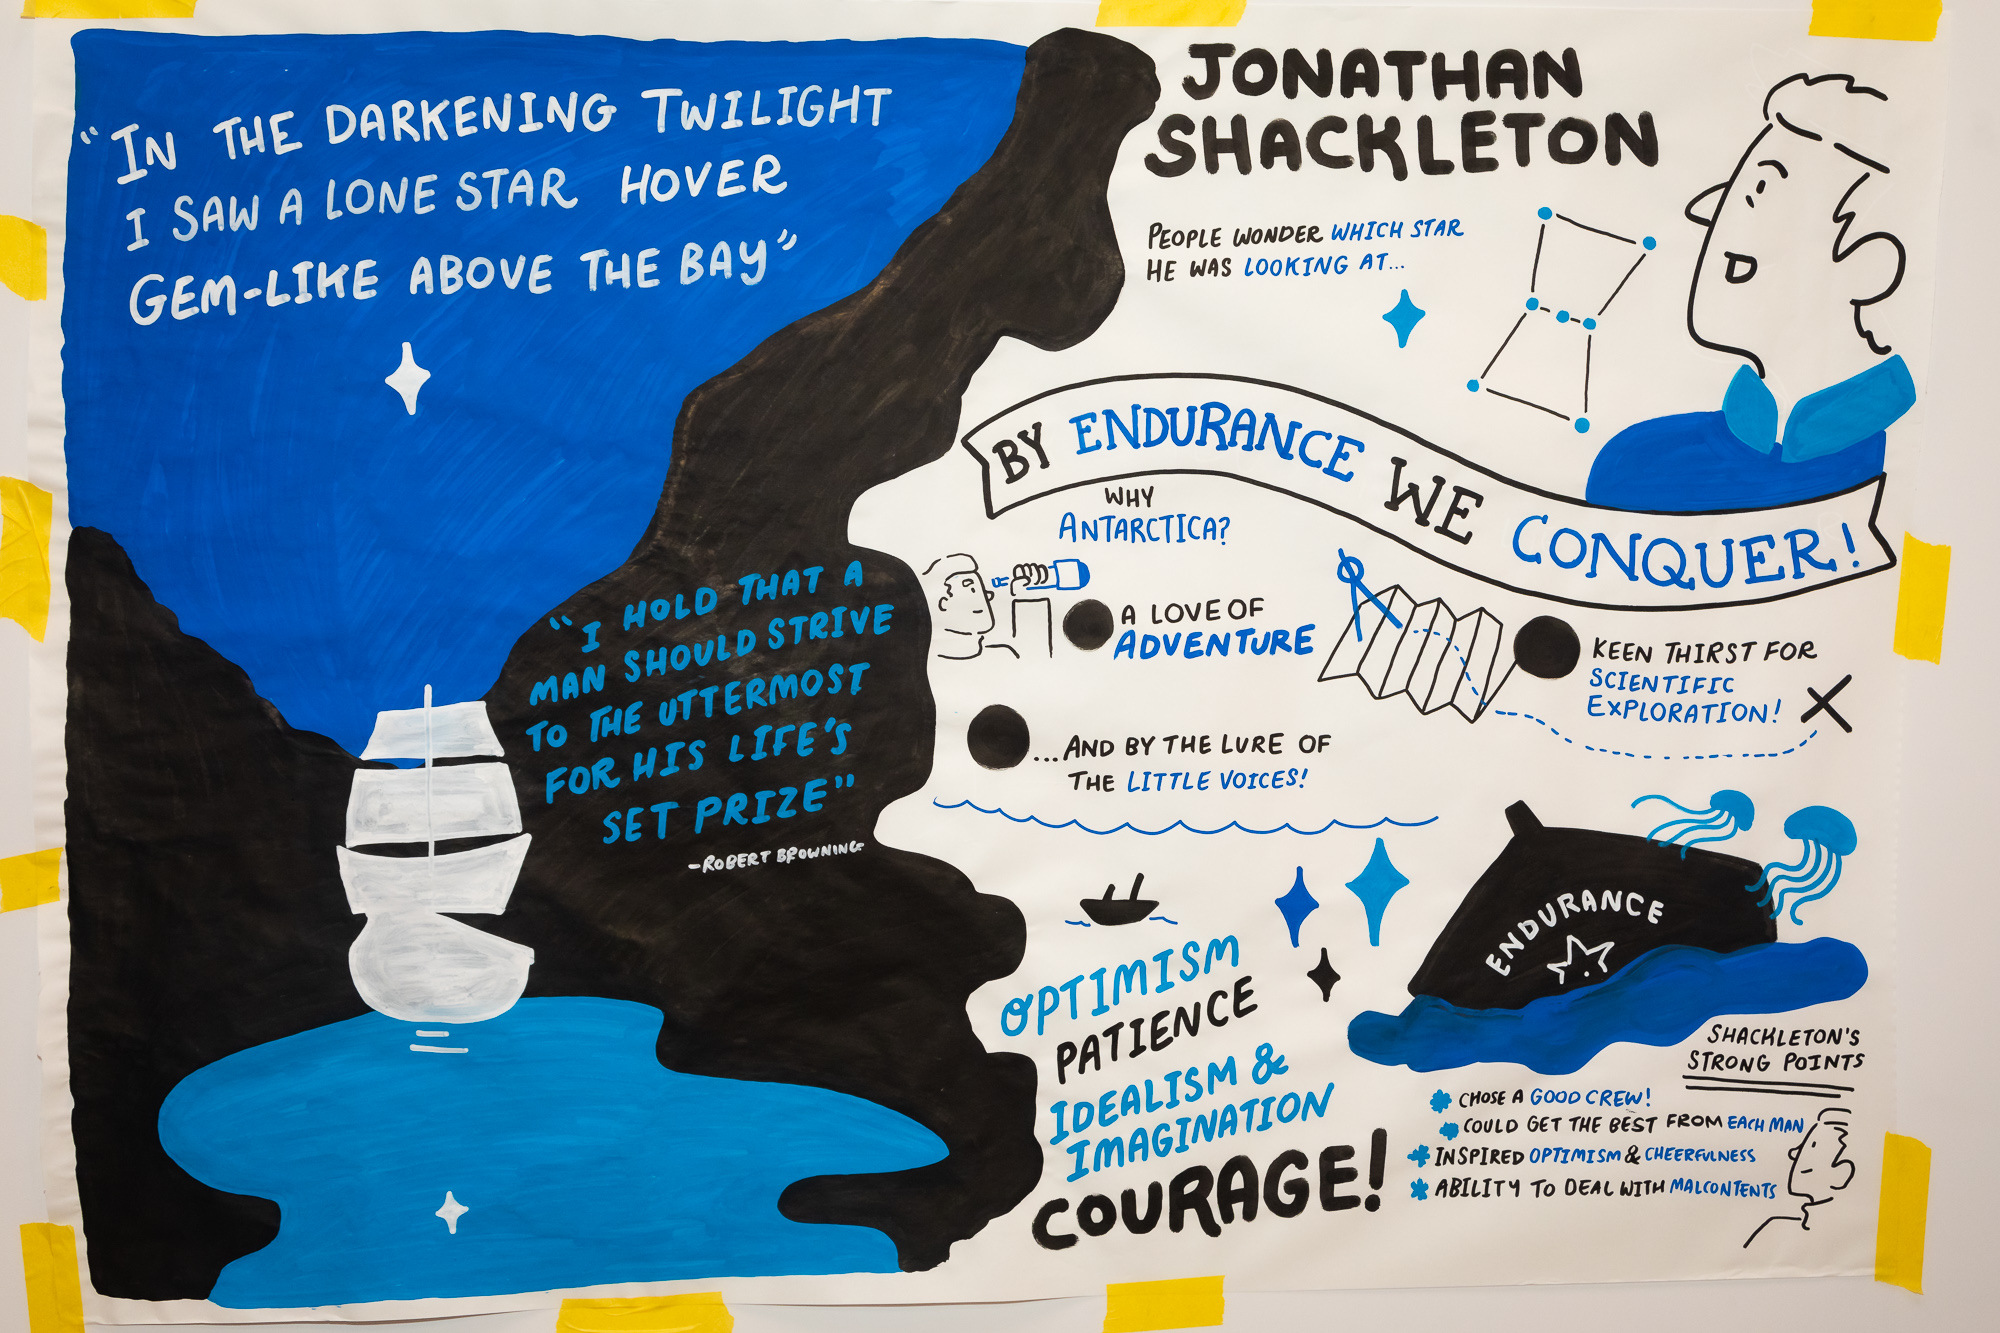 "IN THE DARKENING TWILIGHT
I SAW A LONE STAR HOVER
GEM-LIKE ABOVE THE BAY"
"I HOLD THAT A
MAN SHOULD STRIVE
TO THE UTTERMOST
FOR HIS LIFE'S
SET PRIZE"
-ROBERT BROWNING
JONATHAN
SHACKLETON
PEOPLE WONDER WHICH STAR
HE WAS LOOKING AT...
BY ENDURANCE WE CONQUER!
WHY
ANTARCTICA?
A LOVE OF
ADVENTURE
KEEN THIRST FOR
SCIENTIFIC
EXPLORATION!
...AND BY THE LURE OF
THE LITTLE VOICES!
ENDURANCE
OPTIMISM
PATIENCE
IDEALISM &
IMAGINATION
COURAGE!
SHACKLETON'S
STRONG POINTS
CHOSE A GOOD CREW!
COULD GET THE BEST FROM EACH MAN
INSPIRED OPTIMISM & CHEERFULNESS
ABILITY TO DEAL WITH MALCONTENTS